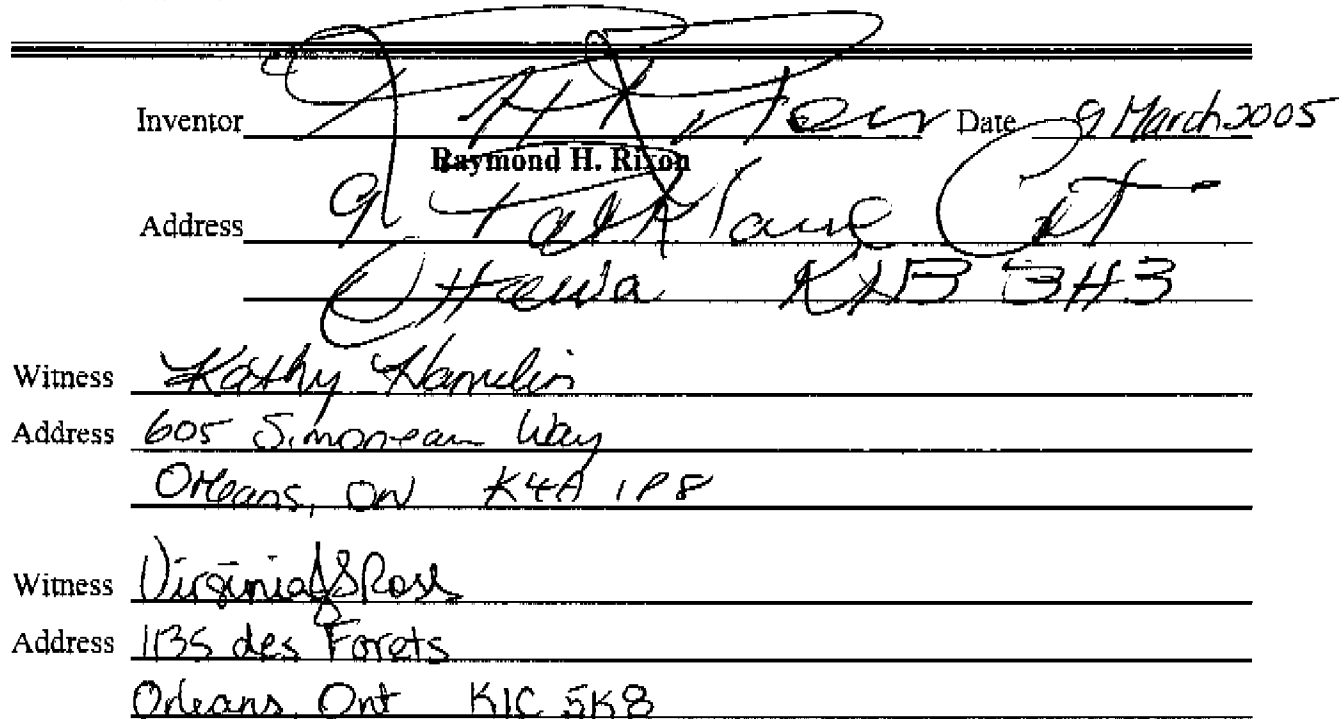 Inventor R H Rixon Date 9 March 2005
Raymond H. Rixon
Address 9
Ottawa 3H3
Witness Kathy Hamelin
Address 605 Simoneau Way
Orleans, ON K4A 1P8
Witness Virginia Ross
Address 1135 des Forets
Orleans Ont K1C 5K8